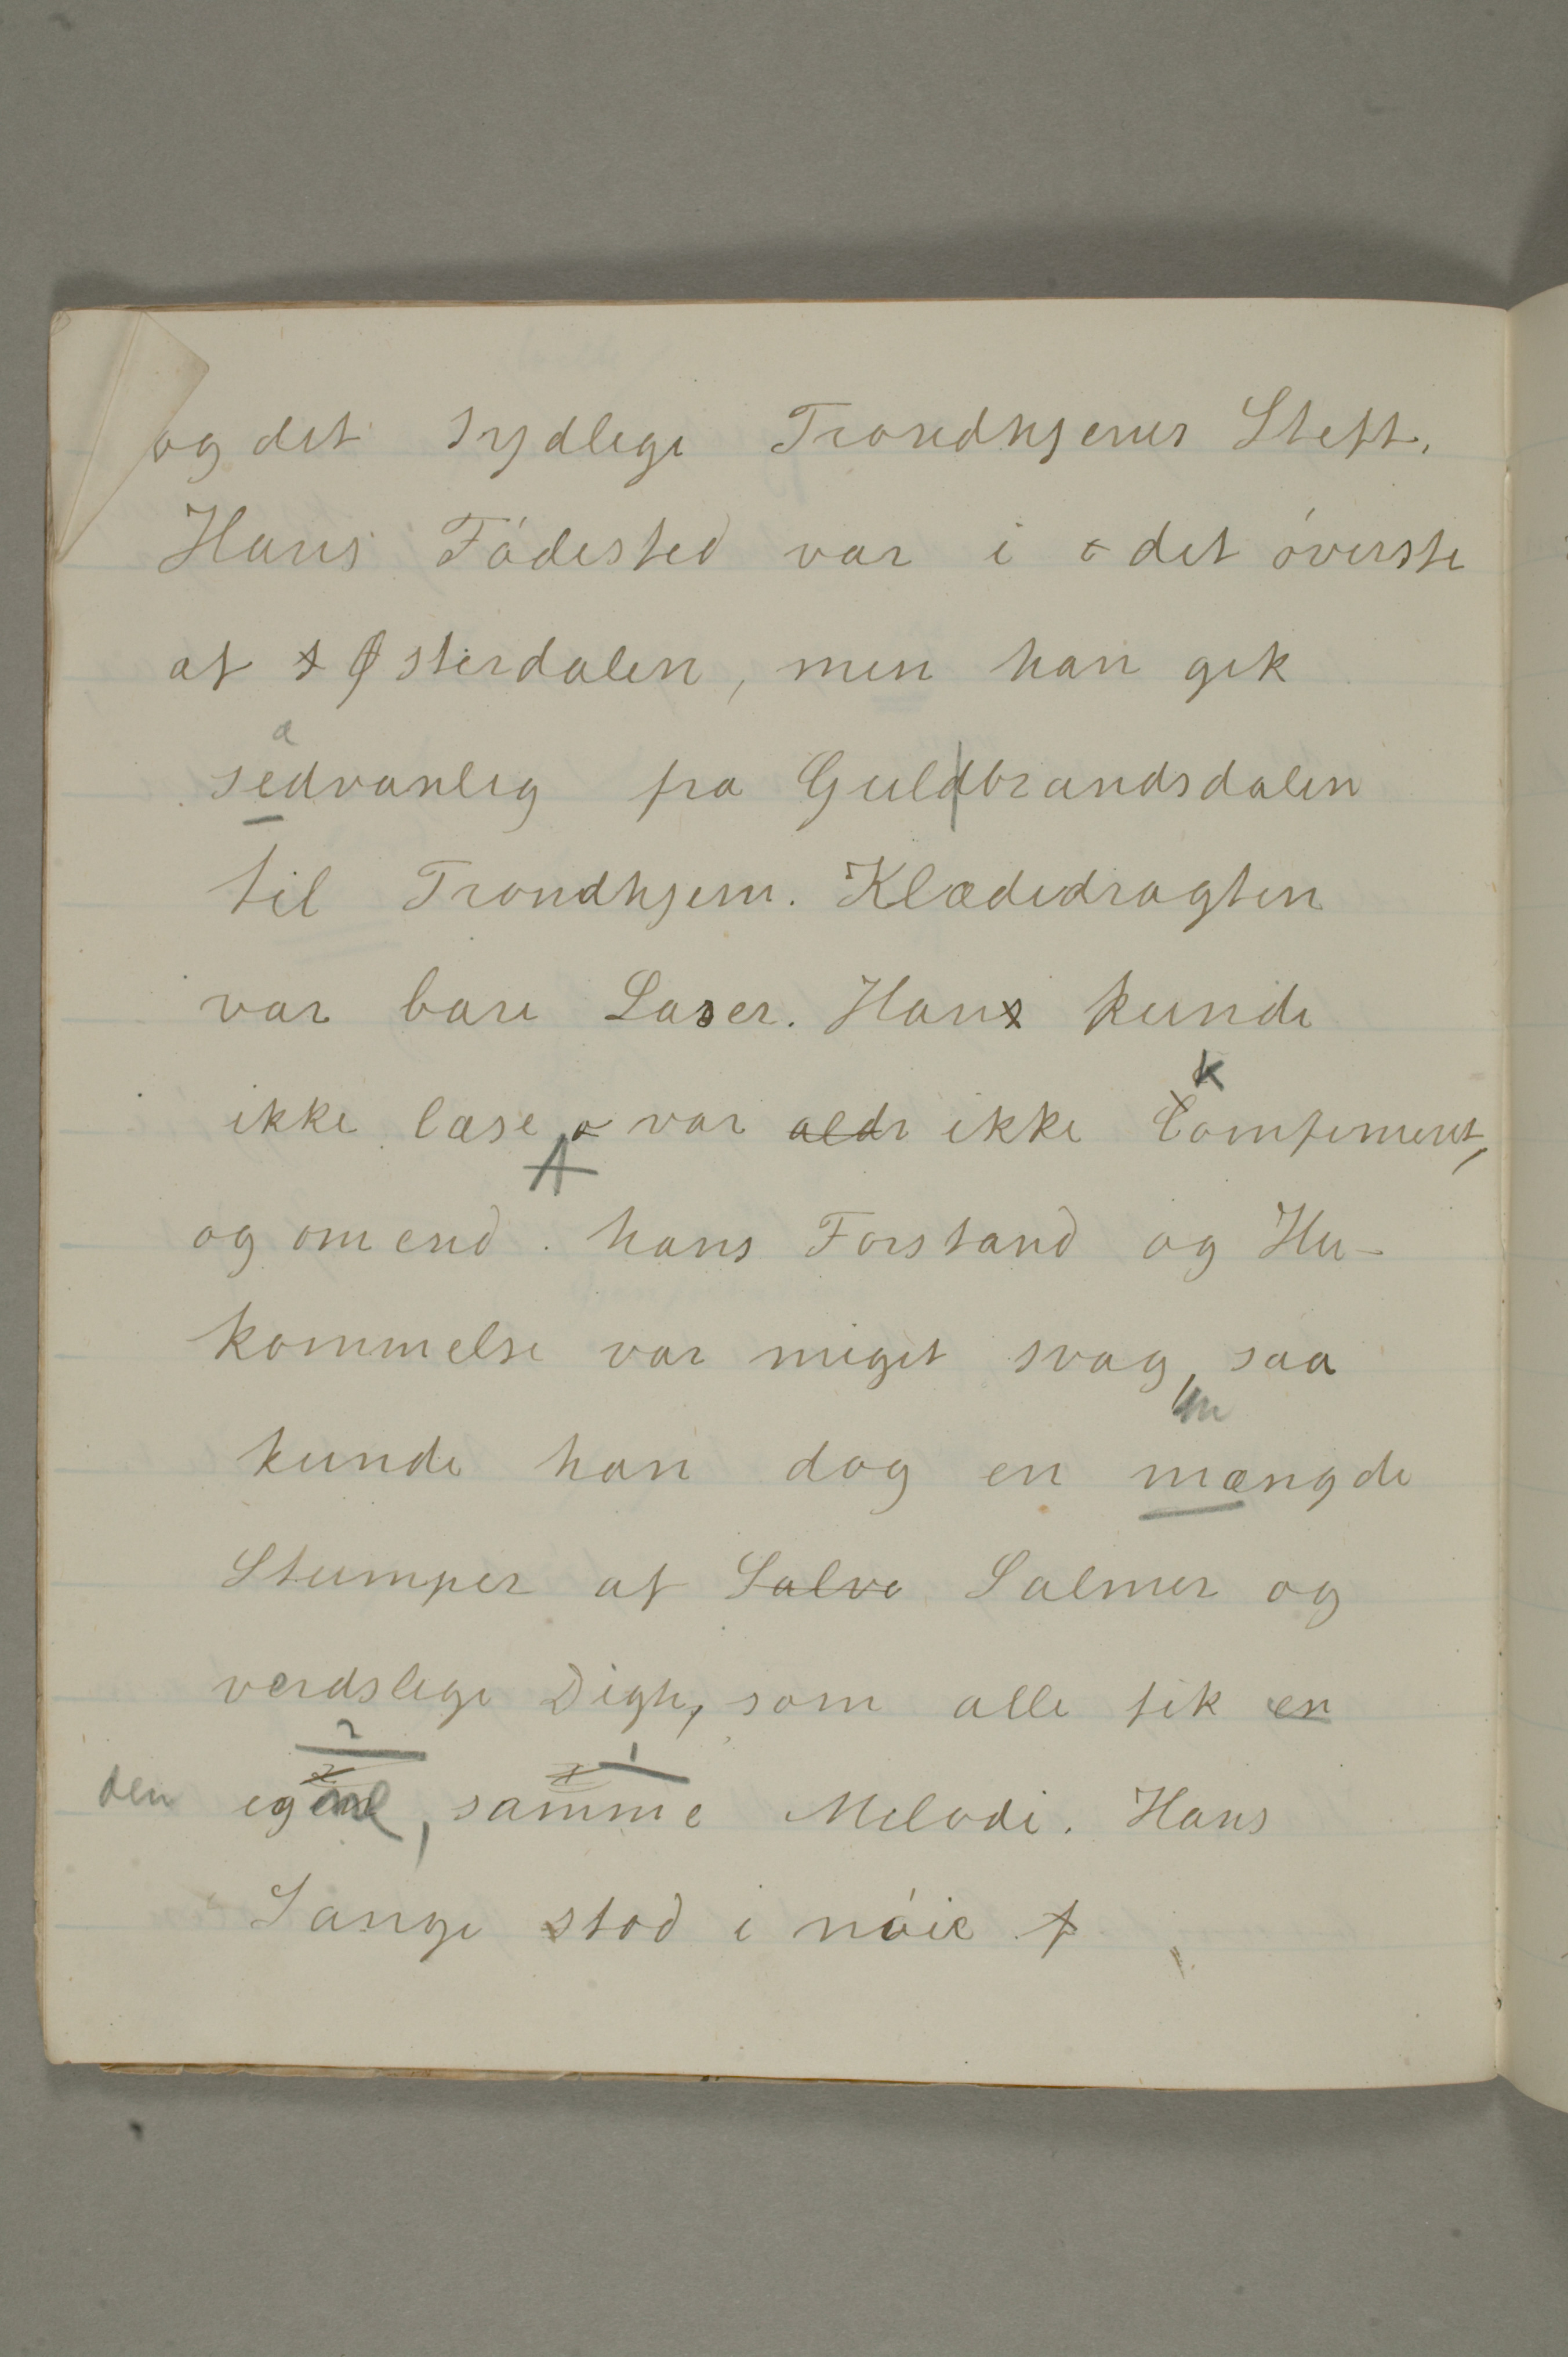 og det sydlige Trondhjems Stift.
Hans Fódested var i o det óverste
af t Østerdalen, men han gik
sedvanlig fra Guldbrandsdalen
til Trondhjem. Klædedragten
var bare Laser. Hans kunde
ikke læse o var aldr ikke Comfimeret,
k
og om end hans Forstand og Hu-
kommelse var meget svag, saa
kunde han dog en mængde
m
Stumper af Salve Salmer og
verdslige Digte, som alle fik en
2 1
den egene, samme Melodi. Hans
Sange stod i nóie f